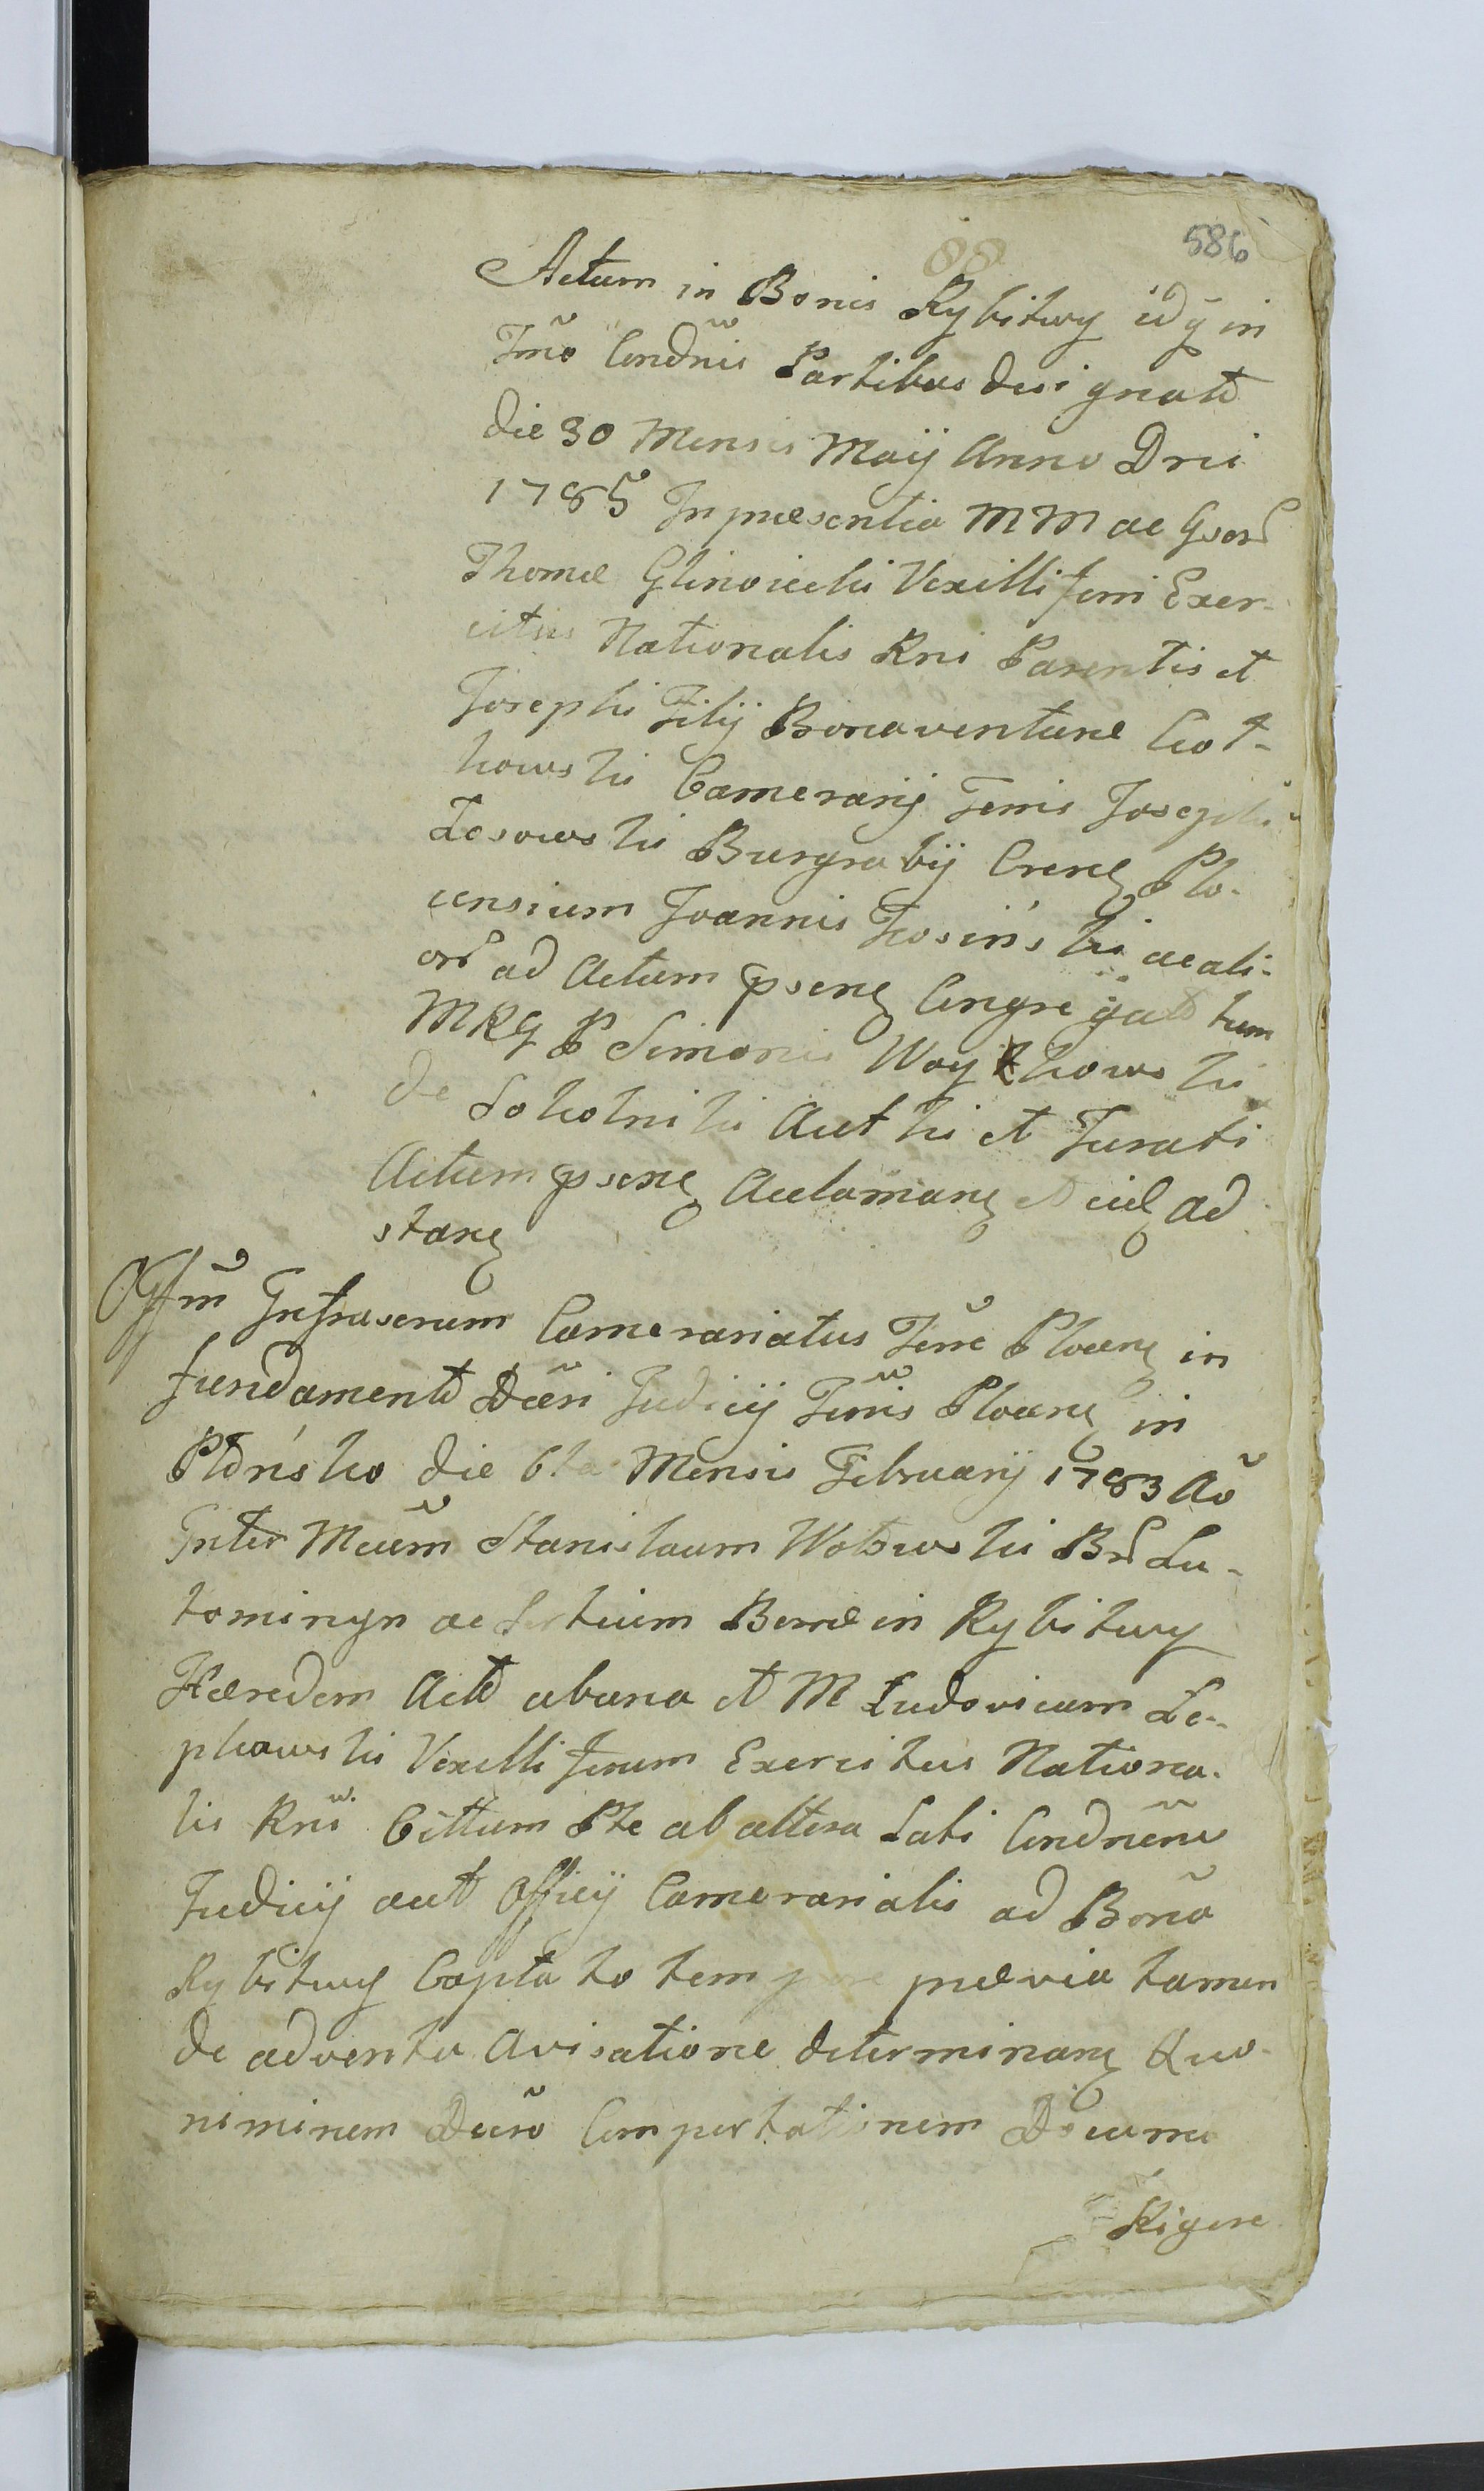 586
Actum in Bonis Rybitwy idq in
Tmo Condnis Partibus designato
die 30 Mensis Maij Anno Dni
1785 In præsentia MM ac Gsor
Thomæ Glinoiecki Vexilliferi Exer-
citus Nationalis Rni Parentis et
Josephi Filij Bonaventuræ
kowski Camerarij Terris Josephi
Lesowski Burgrabij Crens Plo-
censium Joannis Kosinski ac ali-
orr ad Actum psens Congregato tum
MRG P Simonis Woykowski
de Sokolniki Auth et Jurati
Actum psens Acclamans et ad
stans
Offm Infrascrum Camerariatus Terre Plocens in
fundamento Dcri Judicij Terris Plocens in
Płońsko die 6ta Mensis Februarij 1783 Ao
Inter Mcum Stanislaum Wołowski Br Lu-
tomingn ac Sortium Bonæ in Rybitwy
Hæredem Actō ab una et M Ludovicum Le-
pkowski Vexilliferum Exercitus Nationa-
lis Rni Cittum Pte ab altera Lati Condnene
Judicij aut Officij Camerarialis ad Bona
Rybitwy Captato tempore prævia tamen
de adventu Avisatione determinans Quo-
niminem Decro Comportationem Docume
Rigore